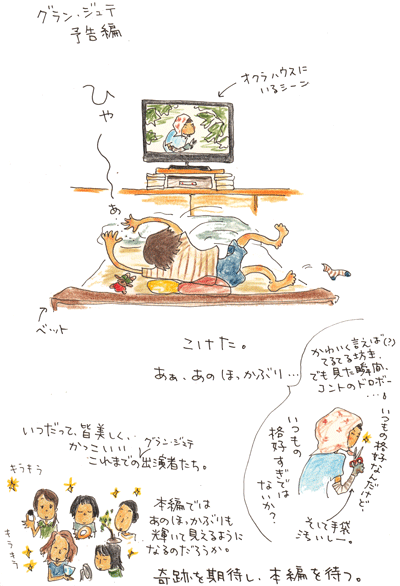 グラン・ジュテ
予告編
オクラハウスに
いるシーン
ひゃ〜
あ
ベット
こけた。
あぁ、あのほっかぶり…
かわいく言えば(?)
てるてる坊主、
でも見た瞬間、
コントのドロボー
…。
いつもの格好なんだけど、
いつもの
格好すぎでは
ないか?
そして手袋
いつだって、皆美しく、
かっこいい
グラン・ジュテ
これまでの出演者たち。
キラキラ
キラキラ
本編では
あのほっかぶりも
輝いて見えるように
なるのだろうか。
奇跡を期待し、本編を待つ。